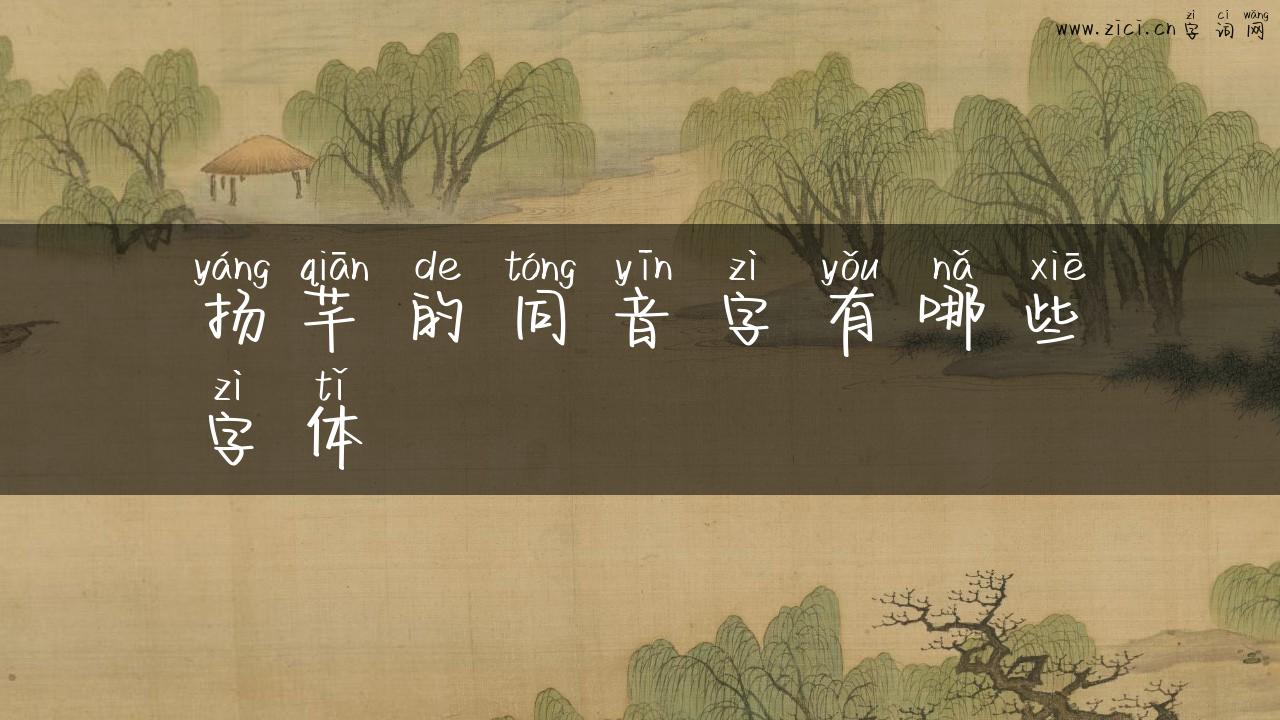 zì cí wǎng
www.zici.cn 字 词 网
yáng qiān de tóng yīn zì yǒu nǎ xiē
扬 芊 的 同 音 字 有 哪 些
zì tǐ
字 体